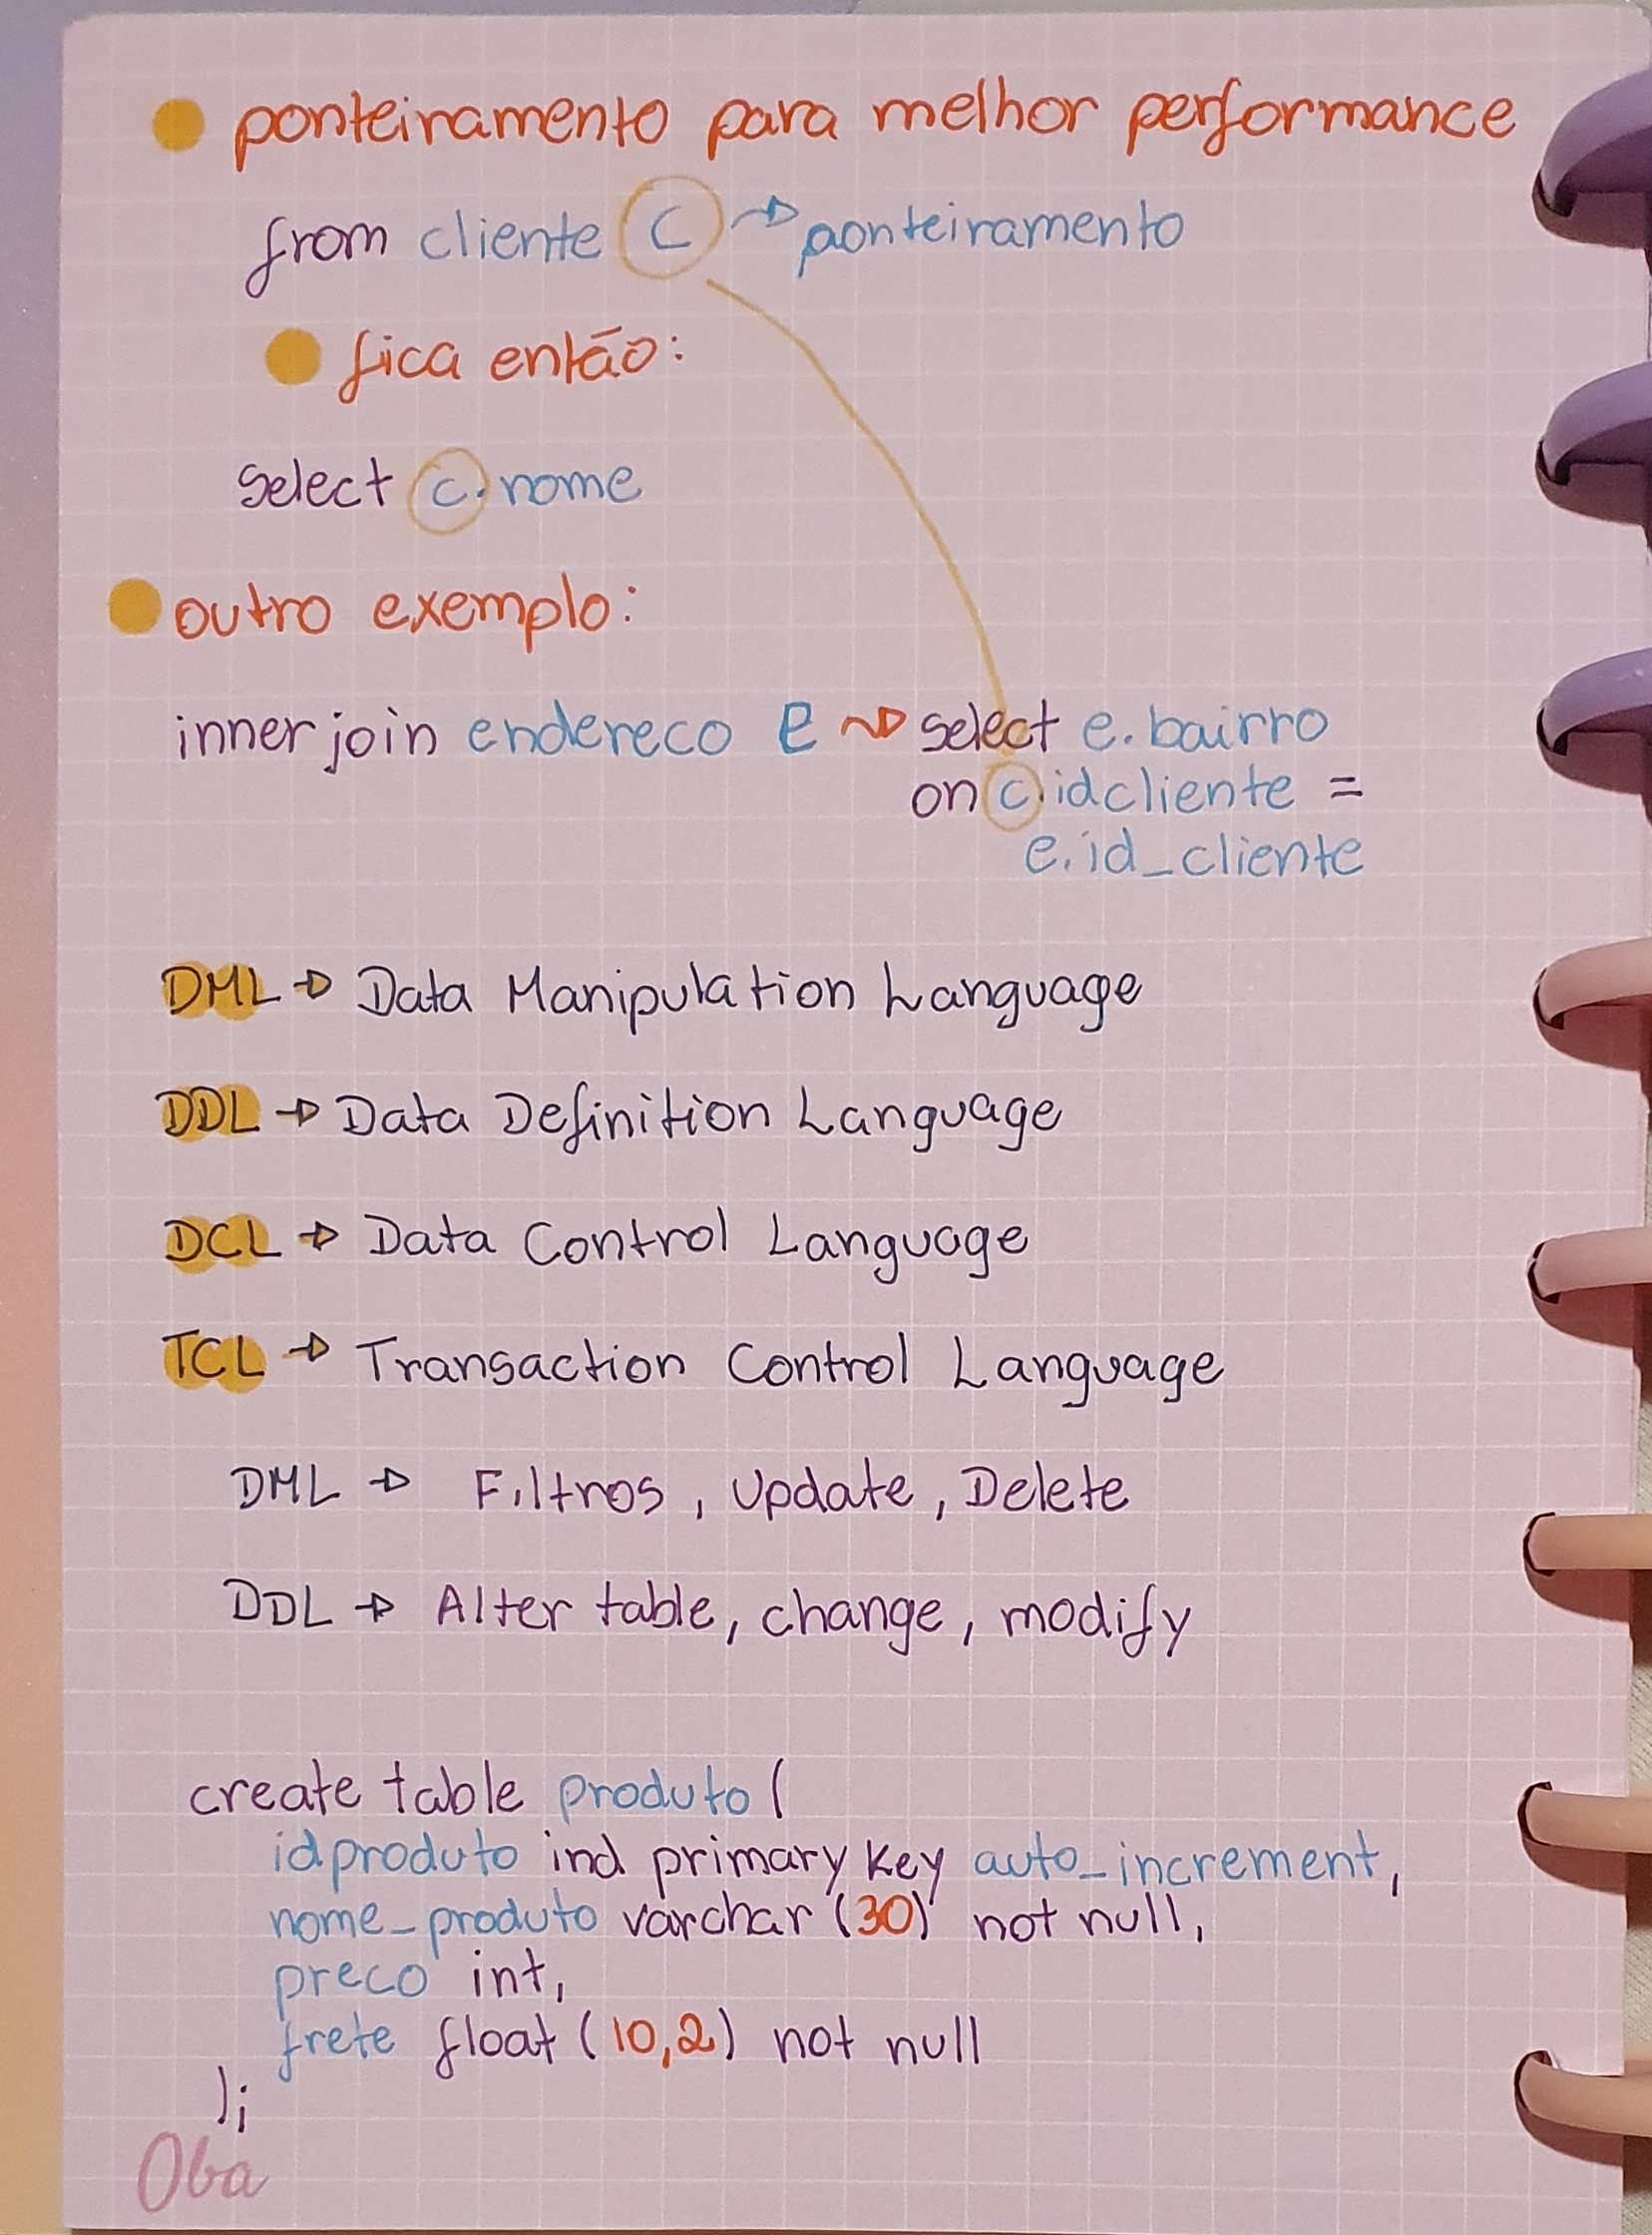 ponteiramento para melhor performance
from cliente C → ponteiramento
fica então:
select c.nome
outro exemplo:
inner join endereco e → select e.bairro
on c.idcliente =
e.id_cliente
DML → Data Manipulation Language
DDL → Data Definition Language
DCL → Data Control Language
TCL → Transaction Control Language
DML → Filtros, Update, Delete
DDL → Alter table, change, modify
create table produto (
idproduto ind primary key auto_increment,
nome_produto varchar (30) not null,
preco int,
frete float (10,2) not null
);
Oba